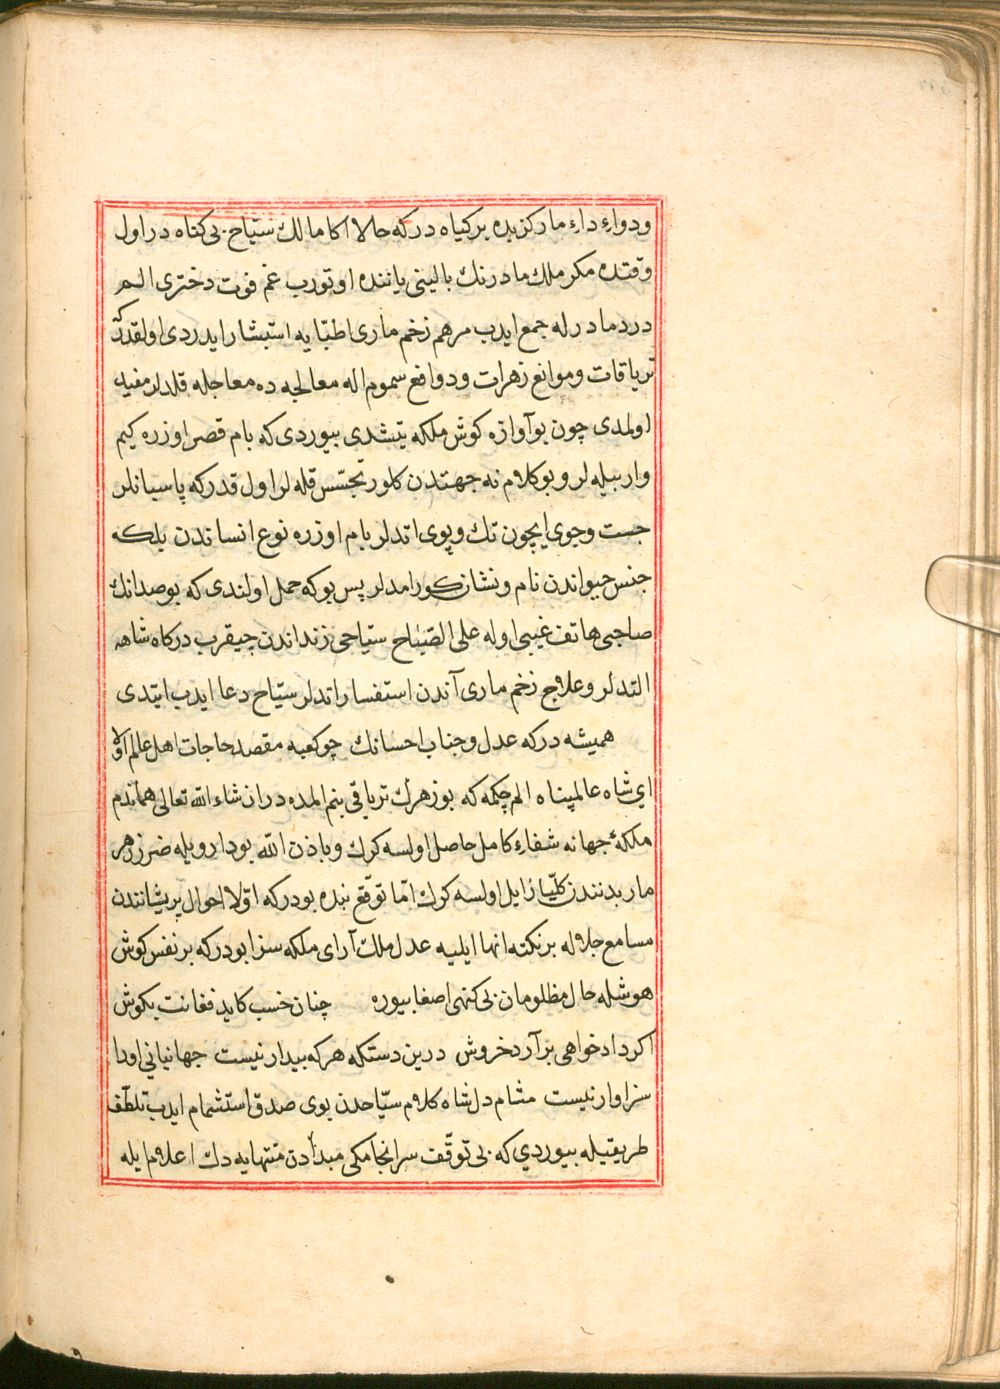 ودواء داء مار كزيده بر كياه در كه حالا اكا مالك سيّاح بى كناه در اول
وقتده مكر ملك مادرنك بالينى ياننده اوتورب غم فوت دخترى الم
درد مادر له جمع ايدب مرهم زخم مارى اطبّايه استبشار ايدردى اولقدر كه
ترياقات وموانع زهرات ودوافع سموم اله معالجه ده معاجله قلدلر مفيد
اولمدى چون بو آوازه كوش ملكه يتشدى بيوردى كه بام قصر اوزره كيم
وار بيله لر و بو كلام نه جهتدن كلور تجسّس قله لر اول قدر كه پاسبانلر
جست وجوى ايچون تك وپوى اتدلر بام اوزره نوع انساندن بلكه
جنس حيواندن نام ونشان كورامدلر پس بوكه حمل اولندى كه بو صدانك
صاحبى هاتف غيبى اوله على الصّباح سيّاحى زنداندن چيقرب دركاه شاهه
التدلر وعلاج زخم مارى آندن استفسار اتدلر سيّاح دعا ايدب ايتدى
هميشه دركه عدل وجناب احسانك چو كعبه مقصد حاجات اهل عالم اولا
اي شاه عالمپناه الم چكمه كه بو زهرك ترياقى بنم المده در ان شاء الله تعالى هماندم
ملكهٔ جهانه شفاء كامل حاصل اولسه كرك وباذن الله بو دارو يله ضرر زهر
مار بدنندن كلّيا زايل اولسه كرك امّا توقّع بنده بودر كه اوّلا احوال پريشانندن
مسامع جلاله بر نكته انها ايليه عدل ملك آراى ملكه سزا بودر كه بر نفس كوش
هوشله حال مظلومان بى كنهى اصغا بيوره چنان خسب كايد فغانت بكوش
اكر دادخواهى برآرد خروش درين دستكه هر كه بيدار نيست جهانبانى اورا
سزاوار نيست مشام دل شاه كلام سيّاحدن بوى صدق استشمام ايدب تلطّف
طريقيله بيوردي كه بى توقّف سرانجامكى مبدأدن منتهايه دك اعلام ايله